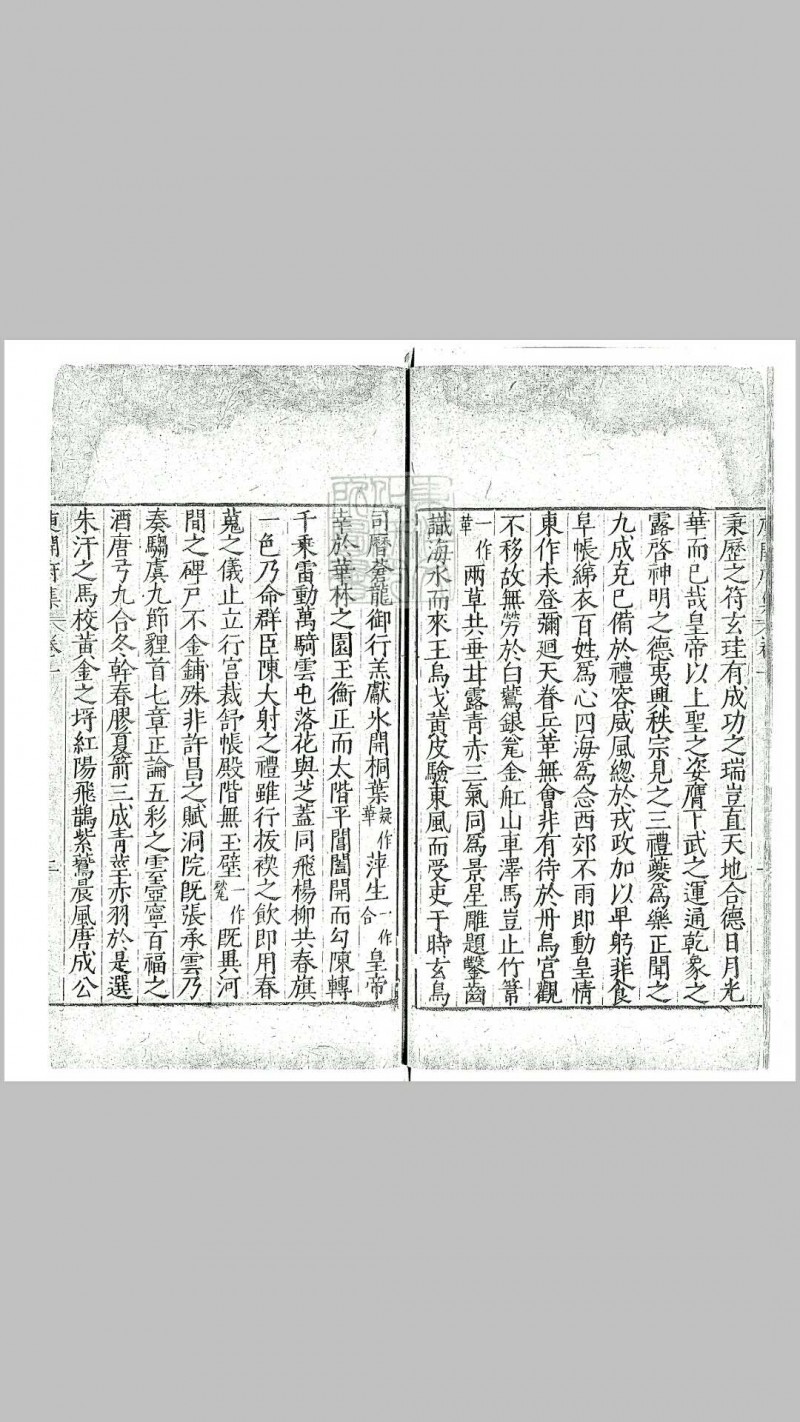 秉歷之符玄珪有成功之瑞豈直天地合德日月光
華而已哉皇帝以上聖之姿膺下武之運通乾象之
露啓神明之德夷典秩宗見之三禮夔爲樂正聞之
九成克已備於禮容威風總於戎政加以卑躬菲食
皁帳綈衣百姓爲心四海爲念西郊不雨即動皇情
東作未登彌廻天眷兵革無會非有待於丹烏宮觀
不移故無勞於白鷰銀瓮金舩山車澤馬豈止竹葦
一作華兩草共垂甘露青赤三氣同爲景星雕題鑿齒
識海水而來王烏弋黃皮驗東風而受吏于時玄鳥
司曆蒼龍御行羔獻氷開桐葉疑作華萍生一作合皇帝
幸於華林之園玉衡正而太階平閶闔開而勾陳轉
千乘雷動萬騎雲屯落花與芝蓋同飛楊柳共春旗
一色乃命群臣陳大射之禮雖行拔禊之飲即用春
蒐之儀止立行宮裁舒帳殿階無玉璧一作甃既異河
間之碑戸不金鋪殊非許昌之賦洞院既張承雲乃
奏騶虞九節貍首七章正論五彩之雲壺寧百福之
酒唐弓九合冬幹春膠夏箭三成青莖赤羽於是選
朱汗之馬校黃金之埒紅陽飛鵲紫鷰晨風唐成公
庾開府集 卷一